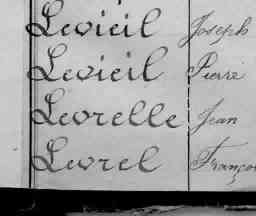 Levieil Joseph
Levieil Pierre
Levrelle Jean
Levrel